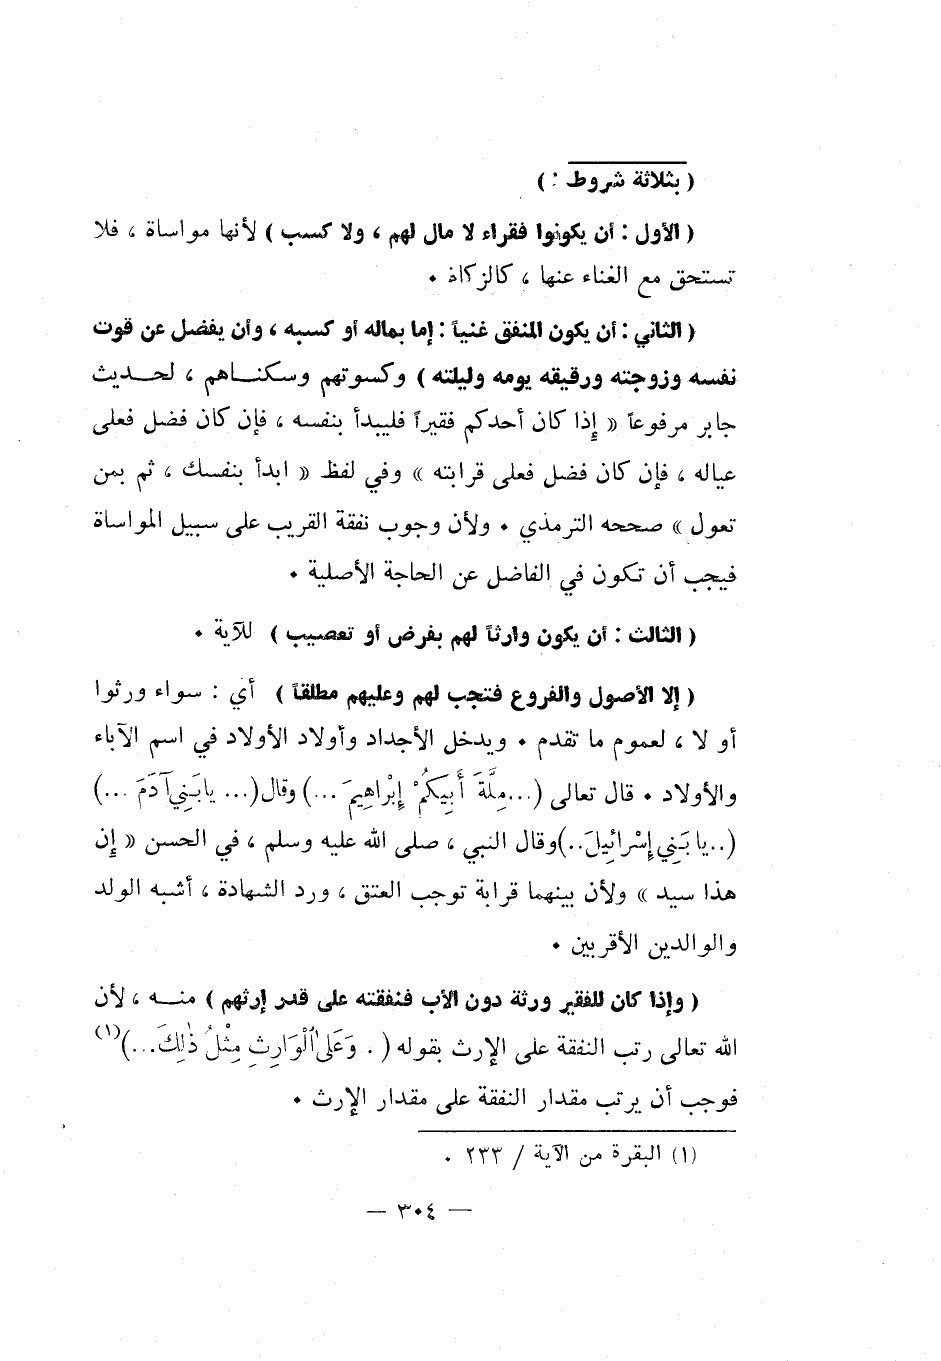 ( بثلاثة شروط : )
( الأول : أن يكونوا فقراء لا مال لهم ، ولا كسب ) لأنها مواساة ، فلا
تستحق مع الغناء عنها ، كالزكاة .
( الثاني : أن يكون المنفق غنياً : إما بماله أو كسبه ، وأن يفضل عن قوت
نفسه وزوجته ورقيقه يومه وليلته ) وكسوتهم وسكنـاهم ، لحـديث
جابر مرفوعاً « إذا كان أحدكم فقيراً فليبدأ بنفسه ، فإن كان فضل فعلى
عياله ، فإن كان فضل فعلى قرابته » وفي لفظ « ابدأ بنفسك ، ثم بمن
تعول » صححه الترمذي . ولأن وجوب نفقة القريب على سبيل المواساة
فيجب أن تكون في الفاضل عن الحاجة الأصلية .
( الثالث : أن يكون وارثاً لهم بفرض أو تعصيب ) للآية .
( إلا الأصول والفروع فتجب لهم وعليهم مطلقاً ) أي : سواء ورثوا
أو لا ، لعموم ما تقدم . ويدخل الأجداد وأولاد الأولاد في اسم الآباء
والأولاد . قال تعالى (...مِلَّةَ أَبِيكُمْ إِبْرَاهِيمَ ...) وقال(... يابَنِي آدَمَ ...)
(..يا بَنِي إِسْرائِيلَ..)وقال النبي ، صلى الله عليه وسلم ، في الحسن « إن
هذا سيد » ولأن بينهما قرابة توجب العتق ، ورد الشهادة ، أشبه الولد
والوالدين الأقربين .
( وإذا كان للفقير ورثة دون الأب فنفقته على قدر إرثهم ) منـه ، لأن
الله تعالى رتب النفقة على الإرث بقوله ( . وَعَلَى ٱلْوَارِثِ مِثْلُ ذٰلِكَ...)(١)
فوجب أن يرتب مقدار النفقة على مقدار الإرث .
(١) البقرة من الآية / ٢٣٣ .
— ٣٠٤ —